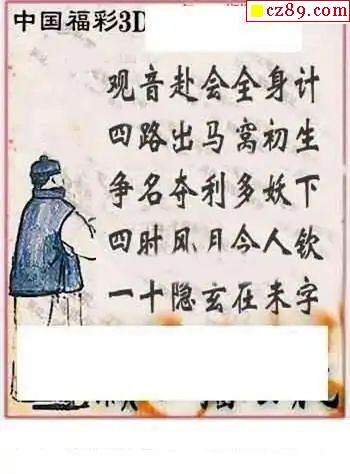 cz89.com
中国福彩3D
观音赴会全身计
四路出马窝初生
争名夺利多妖下
四时风月今人钦
一十隐玄在未字